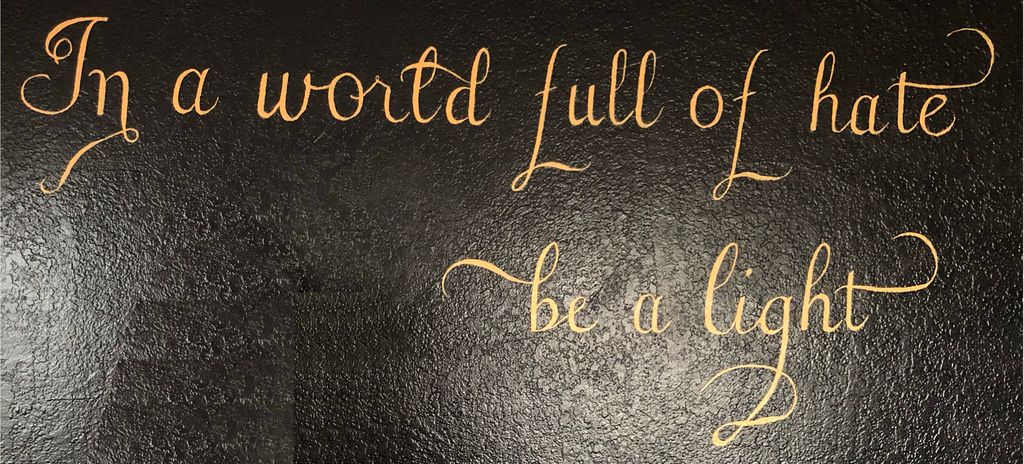 In a world full of hate
be a light